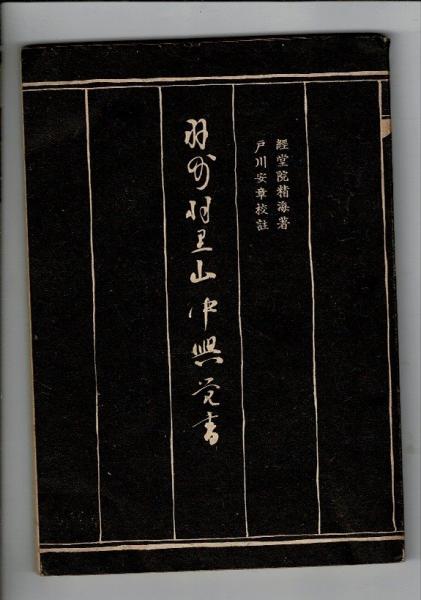 經堂院精海著
戸川安章校註
羽州羽黒山中興覚書